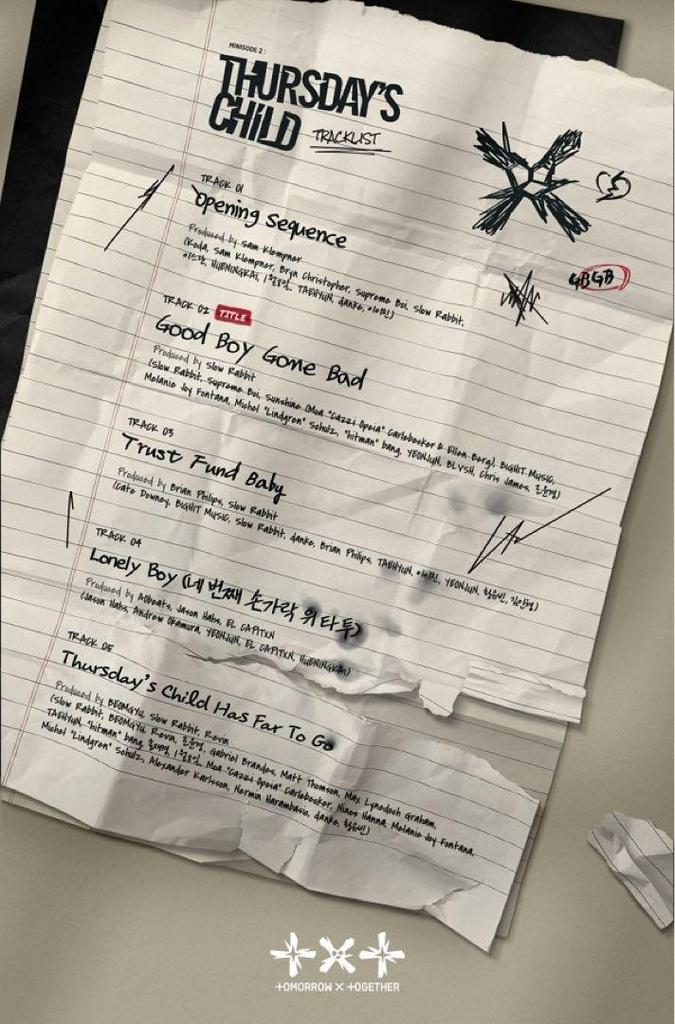 MINISODE 2 :
THURSDAY'S
CHILD TRACKLIST
TRACK 01
Opening Sequence
Produced by Sam Klempner
(Koda, Sam Klempner, Bryn Christopher, Supreme Boi, Slow Rabbit,
이스란, HUENINGKAI, 1월8일, TAEHYUN, danke,
GBGB
TRACK 02 TITLE
Good Boy Gone Bad
Produced by Slow Rabbit
(Slow Rabbit, Supreme Boi, Sunshine (Moa "Cazzi Opeia" Carlebecker & Ellen Berg), BIGHIT MUSIC,
Melanie Joy Fontana, Michel "Lindgren" Schulz, "hitman" bang, YEONJUN, BLVSH, Chris James,
TRACK 03
Trust Fund Baby
Produced by Brian Philips, Slow Rabbit
(Cate Downey, BIGHIT MUSIC, Slow Rabbit, danke, Brian Philips, TAEHYUN, YEONJUN, 황유빈,
TRACK 04
Lonely Boy (네 번째 손가락 위 타투)
Produced by Aobeats, Jason Hahs, EL CAPITXN
(Jason Hahs, Andrew Okamura, YEONJUN, EL CAPITXN, HUENINGKAI)
TRACK 05
Thursday's Child Has Far To Go
Produced by BEOMGYU, Slow Rabbit, Revin
(Slow Rabbit, BEOMGYU, Revin, Gabriel Brandes, Matt Thomson, Max Lynedoch Graham,
TAEHYUN, "hitman" bang, 1월8일, Moa "Cazzi Opeia" Carlebecker, Ninos Hanna, Melanie Joy Fontana,
Michel "Lindgren" Schulz, Alexander Karlsson, Nermin Harambasic, danke, 황유빈)
TXT
TOMORROW X TOGETHER